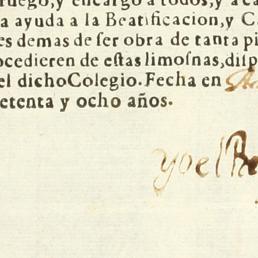 ruego, y encargo a todos, y a ca
a ayuda a la Beatificacion, y C
es demas de ser obra de tanta pi
ocedieren de estas limosnas, disp
el dicho Colegio. Fecha en
etenta y ocho años.
yo el Re